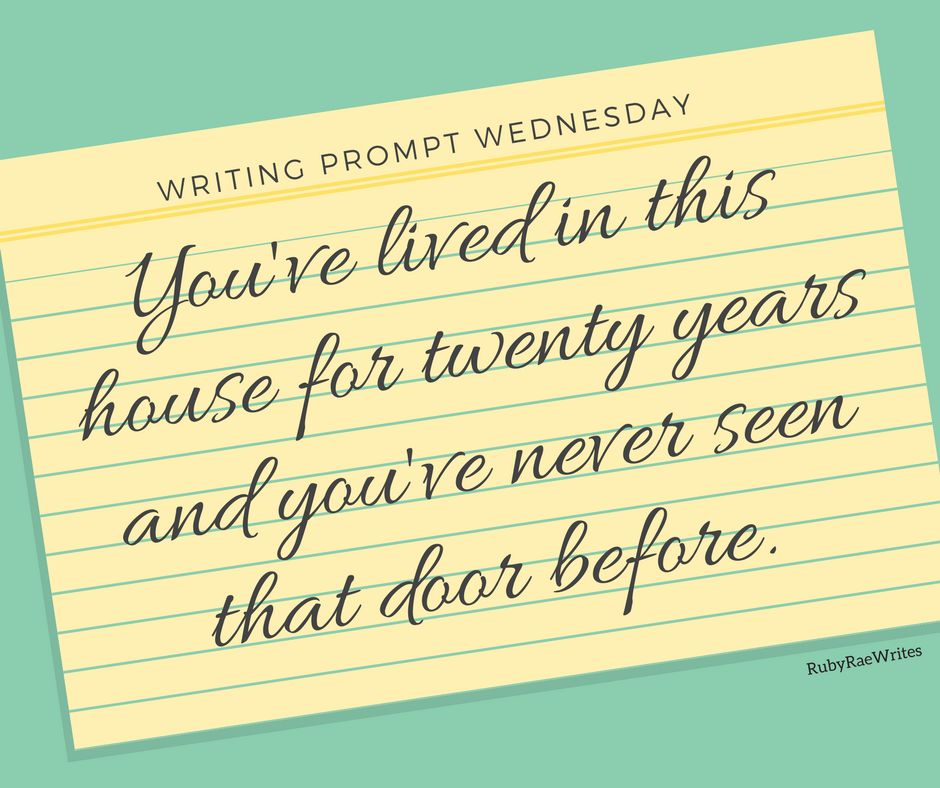 WRITING PROMPT WEDNESDAY
You've lived in this
house for twenty years
and you've never seen
that door before.
RubyRaeWrites